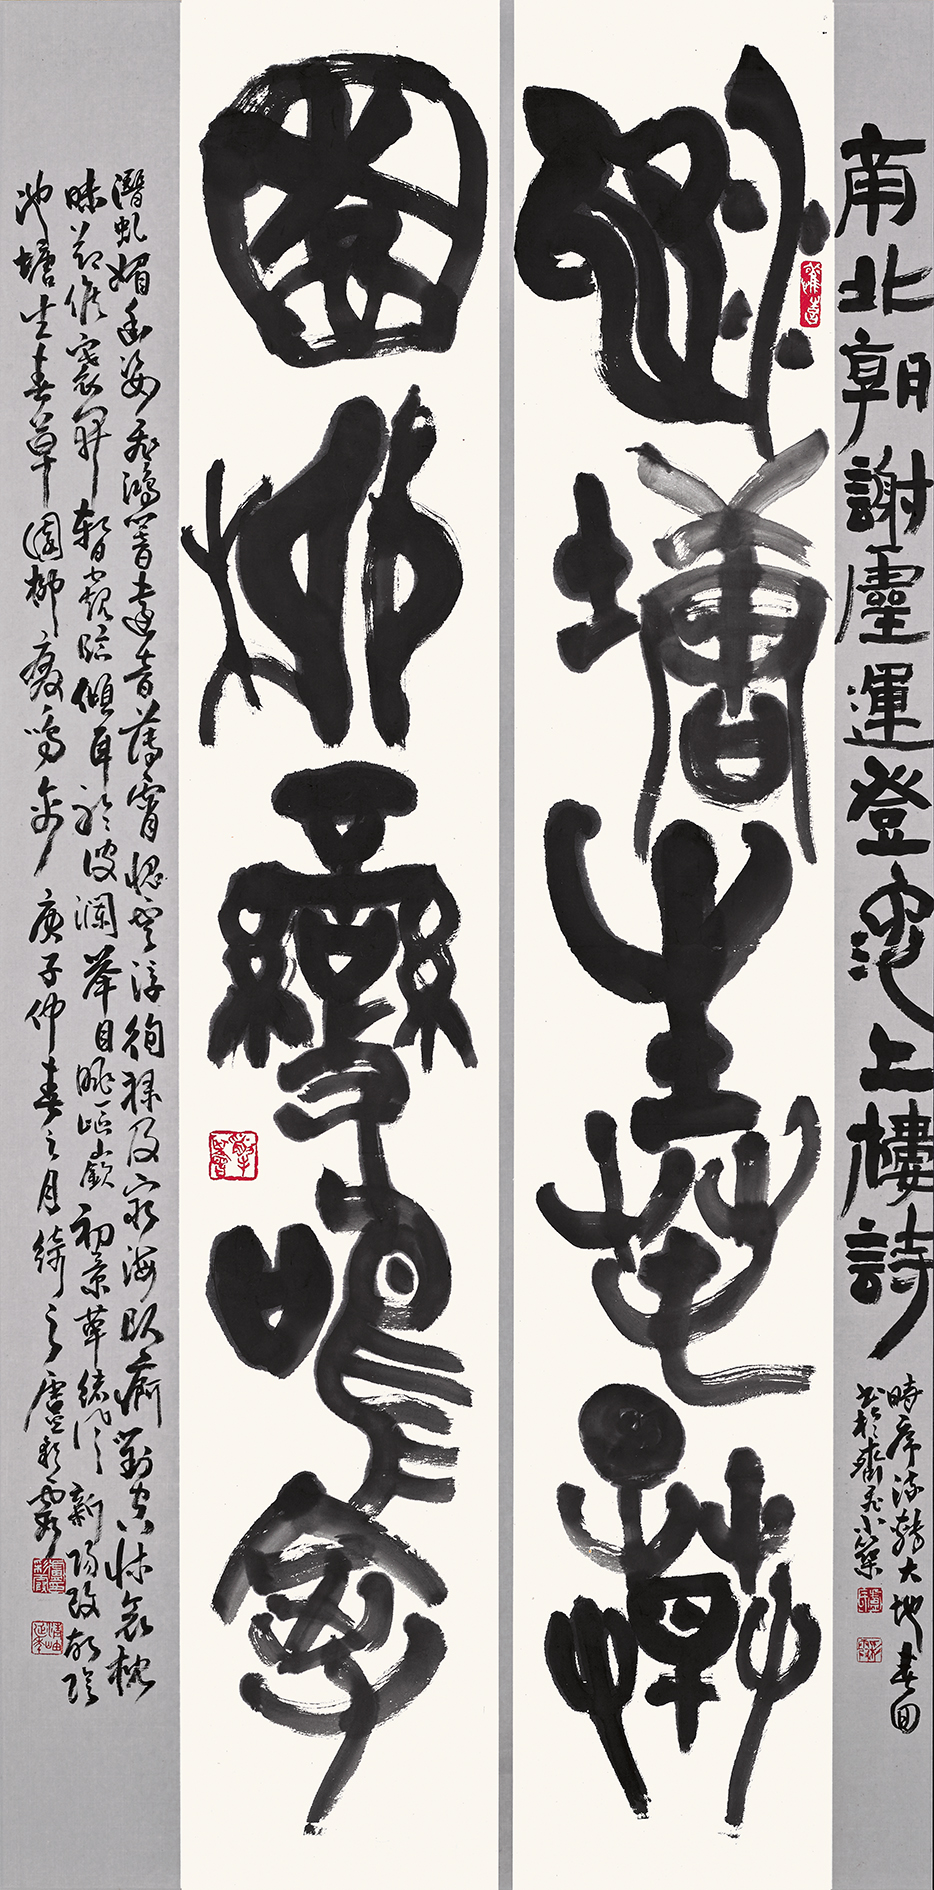 南北朝謝靈運登池上樓詩
時序流轉大地春回
書於齊飛小築
池塘生春草
園柳變鳴禽
潛虬媚幽姿飛鴻響遠音薄霄愧雲浮徇祿及窮海臥痾對空林衾枕
昧節候褰開暫窺臨傾耳聆波瀾舉目眺嶇嶔初景革緒風新陽改故陰
池塘生春草園柳變鳴禽庚子仲春之月綺之盧彩霞